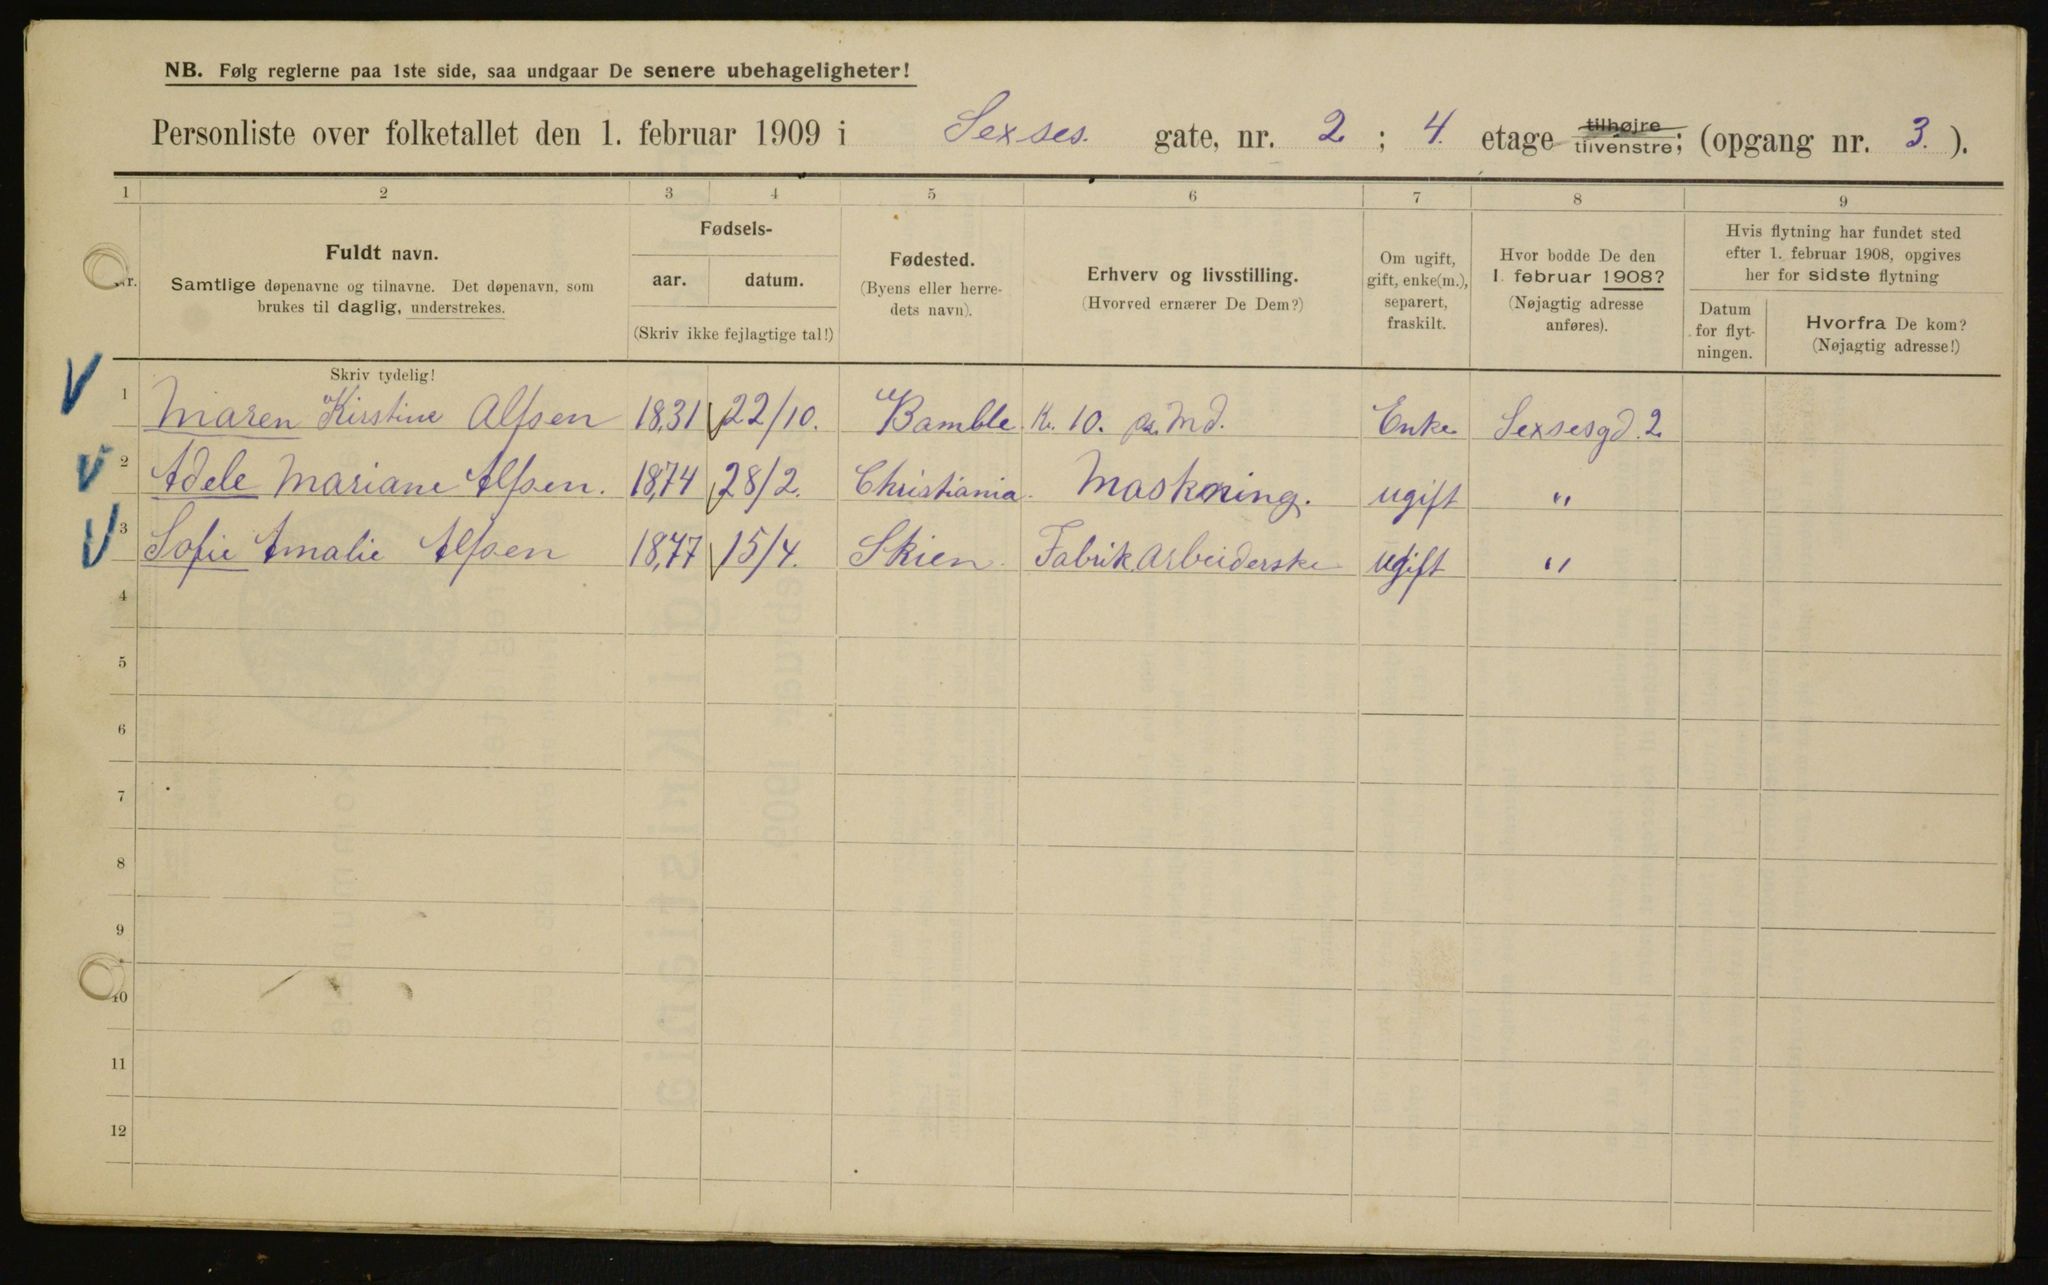 NB. Følg reglerne paa 1ste side, saa undgaar De senere ubehageligheter!
Personliste over folketallet den 1. februar 1909 i Sexses. gate, nr. 2 ; 4. etage tilhøjre tilvenstre; (opgang nr. 3. ).
1 2 3 4 5 6 7 8 9
Nr.
Fuldt navn.
Samtlige døpenavne og tilnavne. Det døpenavn, som
brukes til daglig, understrekes.
Skriv tydelig!
Fødsels-
aar. datum.
(Skriv ikke fejlagtige tal!)
Fødested.
(Byens eller herre-
dets navn).
Erhverv og livsstilling.
(Hvorved ernærer De Dem?)
Om ugift,
gift, enke(m.),
separert,
fraskilt.
Hvor bodde De den
1. februar 1908?
(Nøjagtig adresse
anføres).
Hvis flytning har fundet sted
efter 1. februar 1908, opgives
her for sidste flytning
Datum
for flyt-
ningen.
Hvorfra De kom?
(Nøjagtig adresse!)
1 Maren Kirstine Alfsen 1831 22/10. Bamble Kr. 10. Md. Enke Sexsesgd. 2
2 Adele Mariane Alfsen. 1874 28/2. Christiania. ugift "
3 Sofie Amalie Alfsen 1877 15/4. Skien. Fabrik Arbeiderske ugift "
4
5
6
7
8
9
10
11
12